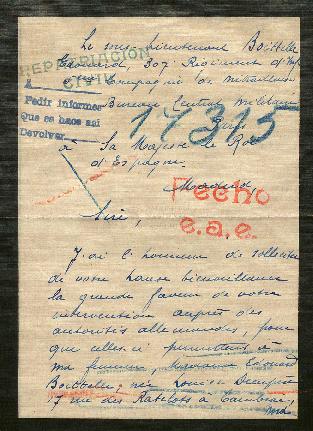 Le sous lieutenant Boittelle
Edouard, 307e Régiment d'Inf
Compagnie de mitrailleuses
REPATRIACIÓN
CIVIL
Pedir informes
Que se hace así
Devolver
Bureau Central Militaire
Paris
17315
à Sa Majesté le Roi
d'Espagne
Madrid
Fecho
e.a.e.
Sire,
J'ai l'honneur de solliciter
de votre haute bienveillance
la grande faveur de votre
intervention auprès des
autorités allemandes, pour
que celles ci permettent à
ma femme, Madame Edouard
Boittelle, née Louise
7 rue des Ratelots à Cambrai,